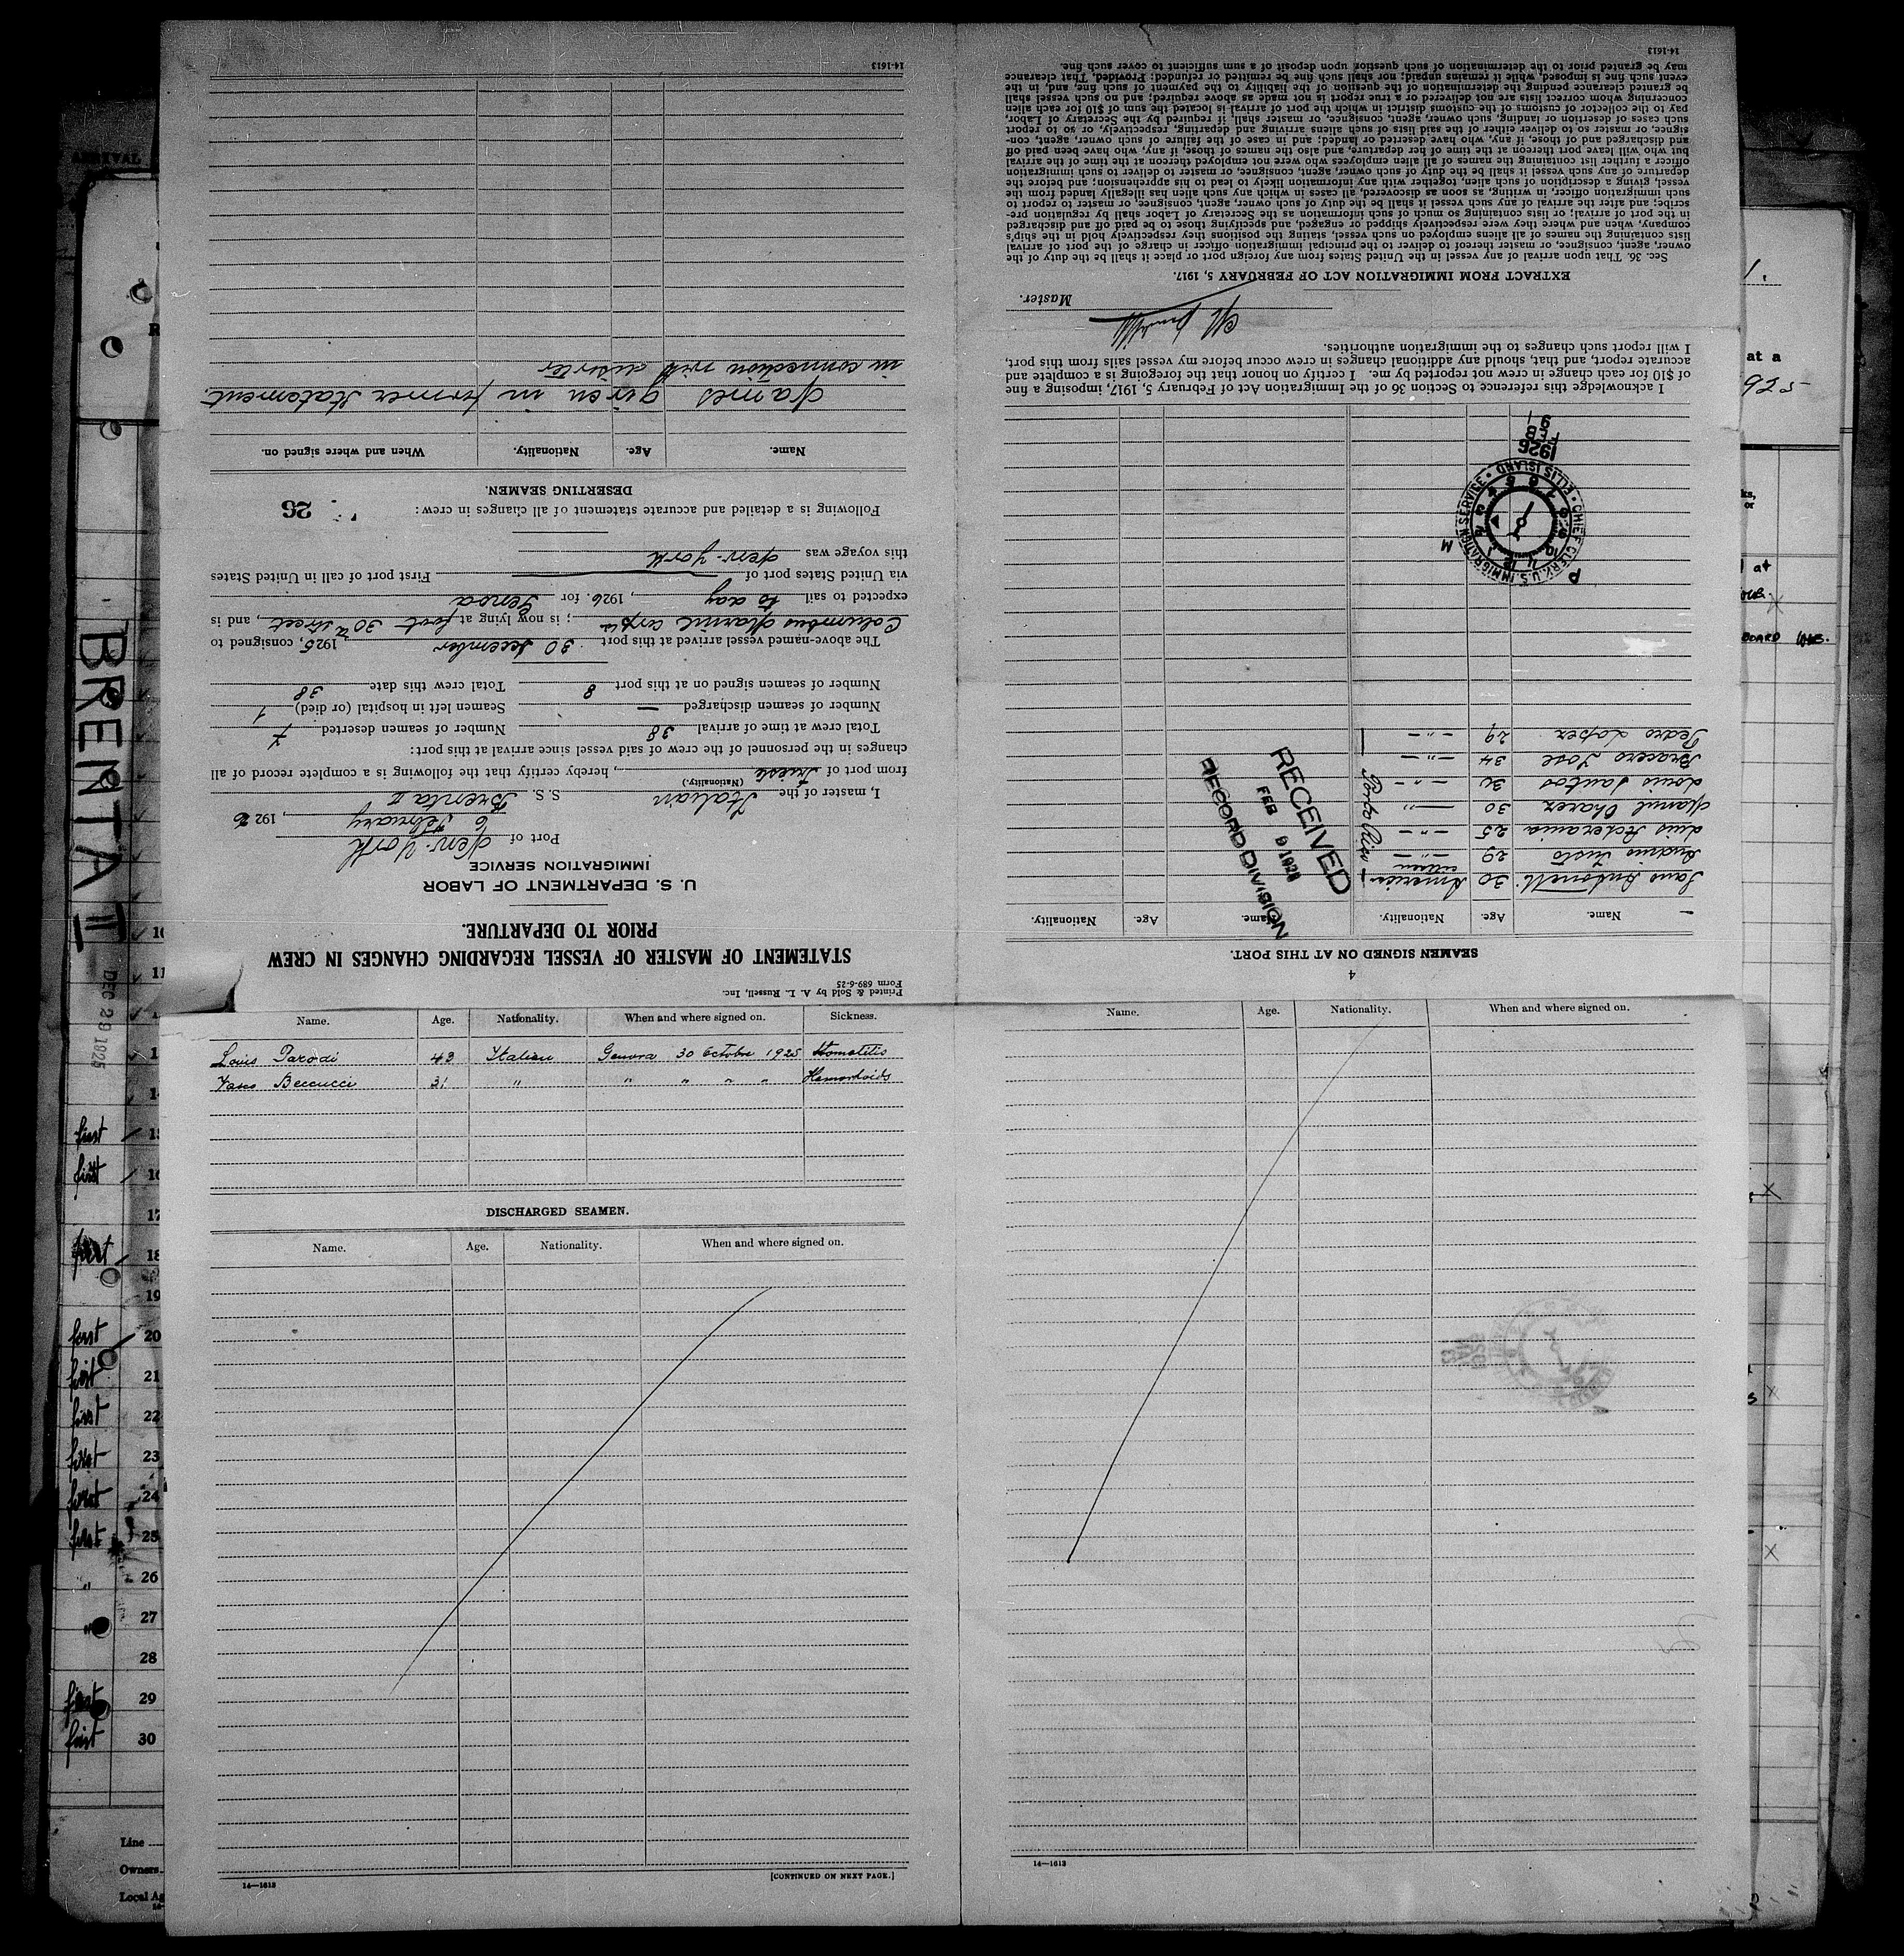 Printed & Sold by A. L. Russell, Inc.
Form 689-6-25
STATEMENT OF MASTER OF VESSEL REGARDING CHANGES IN CREW
PRIOR TO DEPARTURE.
U. S. DEPARTMENT OF LABOR
IMMIGRATION SERVICE
Port of New-York
6 February, 1926
I, master of the Italian S. S. Brenta II
(Nationality.)
from port of Trieste, hereby certify that the following is a complete record of all
changes in the personnel of the crew of said vessel since arrival at this port:
Total crew at time of arrival 38 Number of seamen deserted 7
Number of seamen discharged — Seamen left in hospital (or died) 1
Number of seamen signed on at this port 8 Total crew this date 38
The above-named vessel arrived at this port 30 December 1925, consigned to
Columbus Marine Corp.; is now lying at foot 30th street, and is
expected to sail to day, 1926. for Genoa
via United States port of — First port of call in United States
this voyage was New-York
Following is a detailed and accurate statement of all changes in crew:
26
DESERTING SEAMEN.
Name. Age. Nationality. When and where signed on.
Names given in former statement.
in connection with deserter
14-1613
Name. Age. Nationality. When and where signed on. Sickness.
Louis Parodi 43 Italian Genova 30 Octobre 1925 Stomatitis
Vasco Beccucci 31 " " " " " Hemorhoids
DISCHARGED SEAMEN.
Name. Age. Nationality. When and where signed on.
14—1613
[CONTINUED ON NEXT PAGE.]
Name. Age. Nationality. When and where signed on.
14—1613
4
SEAMEN SIGNED ON AT THIS PORT.
Name. Age. Nationality. Name. Age. Nationality.
Antonelli 30 American citizen
Justo 29 — " —
Luis 25 — " —
Manuel Charez 30 — " —
Louis Santos 30 — " —
Bracero Jose 34 — " —
Pedro Lopez 29 — " —
Porto Rico
RECEIVED
FEB 9 1926
RECORD DIVISION
CHIEF CLERK, U.S. IMMIGRATION SERVICE • ELLIS ISLAND •
P M
1926
FEB 8
I acknowledge this reference to Section 36 of the Immigration Act of February 5, 1917, imposing a fine
of $10 for each change in crew not reported by me. I certify on honor that the foregoing is a complete and
accurate report, and that, should any additional changes in crew occur before my vessel sails from this port,
I will report such changes to the immigration authorities.
Master.
EXTRACT FROM IMMIGRATION ACT OF FEBRUARY 5, 1917.
Sec. 36. That upon arrival of any vessel in the United States from any foreign port or place it shall be the duty of the
owner, agent, consignee, or master thereof to deliver to the principal immigration officer in charge of the port of arrival
lists containing the names of all aliens employed on such vessel, stating the positions they respectively hold in the ship's
company, when and where they were respectively shipped or engaged, and specifying those to be paid off and discharged
in the port of arrival; or lists containing so much of such information as the Secretary of Labor shall by regulation pre-
scribe; and after the arrival of any such vessel it shall be the duty of such owner, agent, consignee, or master to report to
such immigration officer, in writing, as soon as discovered, all cases in which any such alien has illegally landed from the
vessel, giving a description of such alien, together with any information likely to lead to his apprehension; and before the
departure of any such vessel it shall be the duty of such owner, agent, consignee, or master to deliver to such immigration
officer a further list containing the names of all alien employees who were not employed thereon at the time of the arrival
but who will leave port thereon at the time of her departure, and also the names of those, if any, who have been paid off
and discharged and of those, if any, who have deserted or landed; and in case of the failure of such owner, agent, con-
signee, or master so to deliver either of the said lists of such aliens arriving and departing, respectively, or so to report
such cases of desertion or landing, such owner, agent, consignee, or master shall, if required by the Secretary of Labor,
pay to the collector of customs of the customs district in which the port of arrival is located the sum of $10 for each alien
concerning whom correct lists are not delivered or a true report is not made as above required; and no such vessel shall
be granted clearance pending the determination of the question of the liability to the payment of such fine, and, in the
event such fine is imposed, while it remains unpaid; nor shall such fine be remitted or refunded: Provided, That clearance
may be granted prior to the determination of such question upon deposit of a sum sufficient to cover such fine.
14-1613
ARRIVAL
BRENTA II
DEC 29 1925
10
11
first 15
first 16
17
first 18
19
first 20
first 21
first 22
first 23
first 24
first 25
" 26
" 27
28
first 29
first 30
Line
Owners
Local Ag
at a
925
at
BOARD